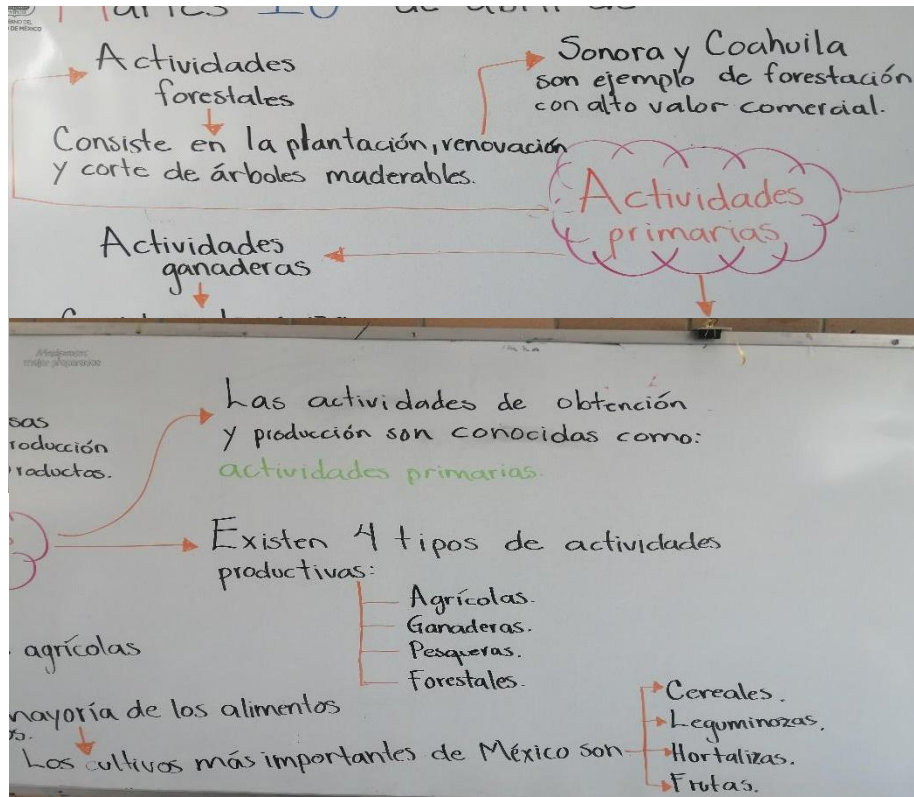 de abril de
DE MÉXICO
Actividades
forestales
Consiste en la plantación, renovación
y corte de árboles maderables.
Sonora y Coahuila
son ejemplo de forestación
con alto valor comercial.
Actividades
primarias
Actividades
ganaderas
mejor preparados
Las actividades de obtención
y producción son conocidas como:
actividades primarias.
sas
roducción
roductos.
Existen 4 tipos de actividades
productivas:
Agrícolas.
Ganaderas.
Pesqueras.
Forestales.
agrícolas
mayoría de los alimentos
os.
Los cultivos más importantes de México son
Cereales.
Leguminozas.
Hortalizas.
Frutas.